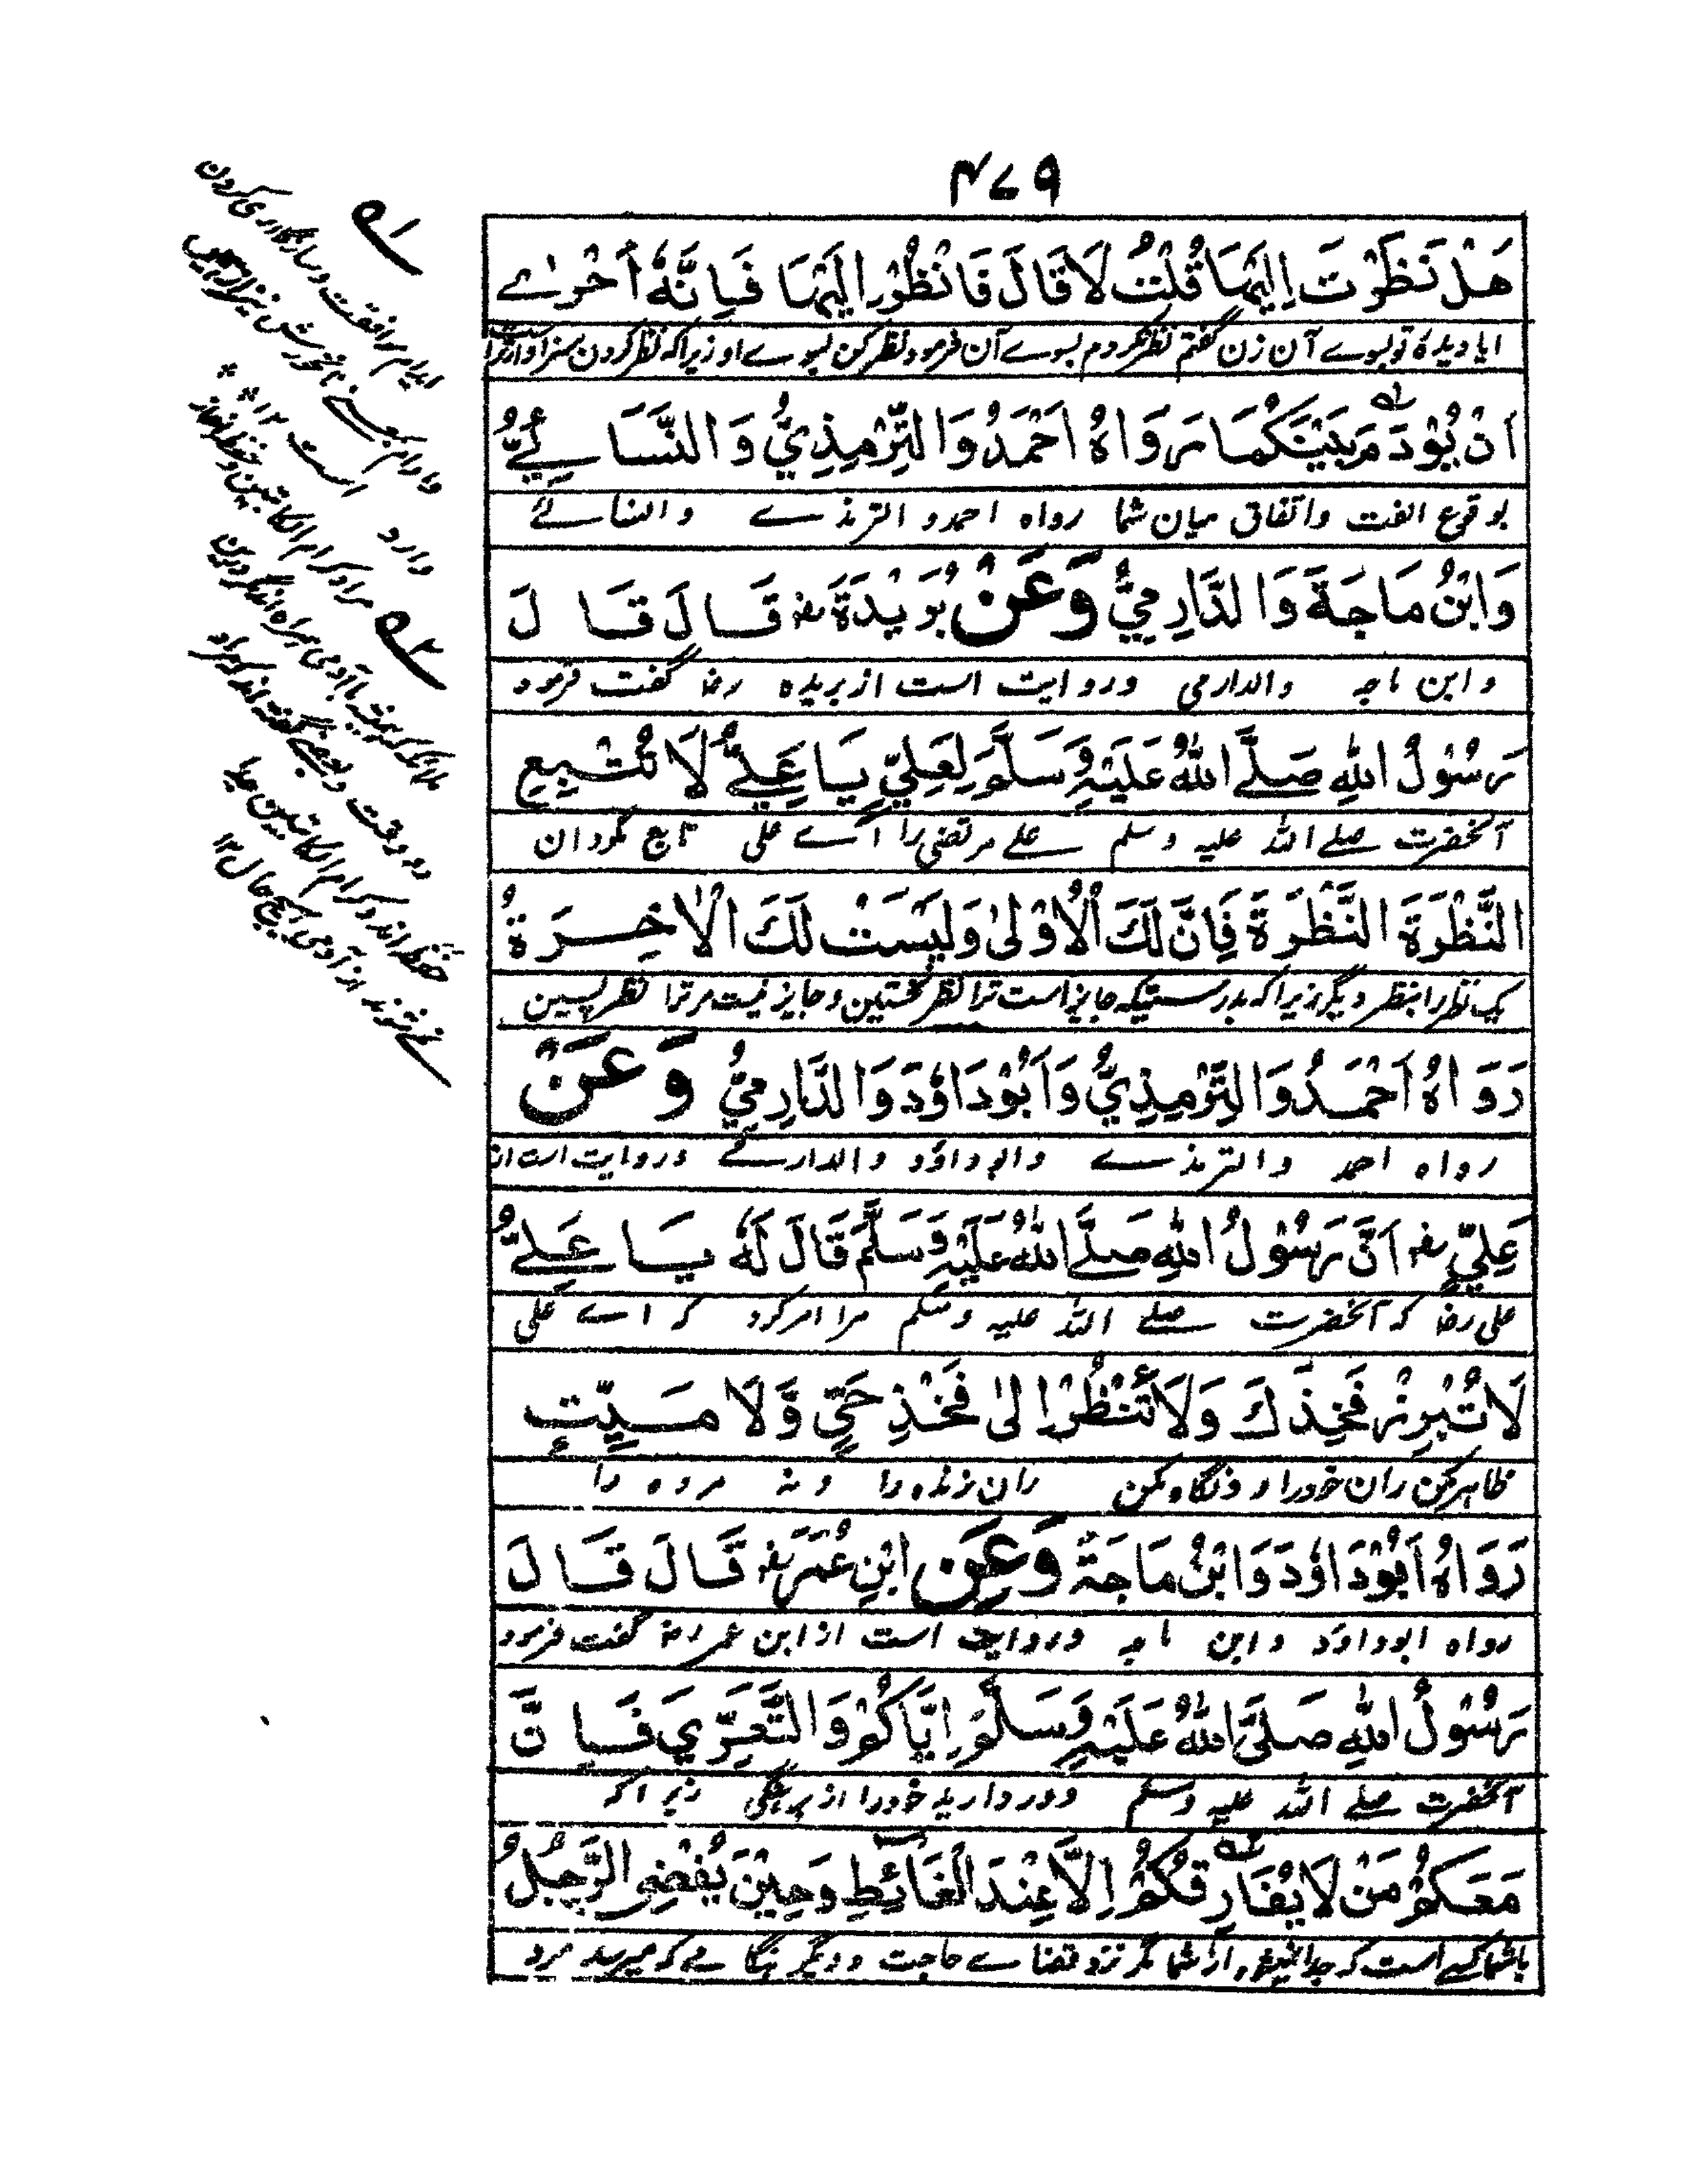 ۴۷۹
هَلْ نَظَرْتَ اِلَيْهَا قُلْتُ لَا قَالَ فَانْظُرْ اِلَيْهَا فَاِنَّهٗ اَحْرٰے
ایا دیدهٔ تو بسوے آن زن گفتم نظر نکردم بسوے آن فرمود نظر کن بسوے او زیرا که نظر کردن سزاوارتر است
اَنْ يُّؤْدَمَ بَيْنَكُمَا رَوَاهُ اَحْمَدُ وَالتِّرْمِذِيُّ وَالنَّسَائِيُّ
بوقوع الفت واتفاق میان شما رواه احمد و الترمذے والنسائے
وَابْنُ مَاجَةَ وَالدَّارِمِيُّ وَعَنْ بُرَيْدَةَ رض قَالَ قَالَ
وابن ماجه والدارمی وروایت است از بریده رض گفت فرمود
رَسُوْلُ اللهِ صَلَّے اللهُ عَلَيْهِ وَسَلَّمَ لِعَلِيٍّ يَا عَلِيُّ لَا تُتْبِعِ
آنحضرت صلے الله علیه وسلم علے مرتضی را اے علی تابع مگردان
النَّظْرَةَ النَّظْرَةَ فَاِنَّ لَكَ الْاُوْلٰى وَلَيْسَتْ لَكَ الْاٰخِرَةُ
یک نظر را بنظر دیگر زیرا که بدرستیکه جایز است ترا نظر نخستین و جایز نیست مر ترا نظر پسین
رَوَاهُ اَحْمَدُ وَالتِّرْمِذِيُّ وَاَبُوْدَاوٗدَ وَالدَّارِمِيُّ وَعَنْ
رواه احمد والترمذے وابوداؤد والدارمے وروایت است از
عَلِيٍّ رض اَنَّ رَسُوْلَ اللهِ صَلَّے اللهُ عَلَيْهِ وَسَلَّمَ قَالَ لَهٗ يَا عَلِيُّ
علی رض که آنحضرت صلے الله علیه وسلم مرا امر کرد که اے علی
لَا تُبْرِزْ فَخِذَكَ وَلَا تَنْظُرْ اِلٰى فَخِذِ حَيٍّ وَّلَا مَيِّتٍ
ظاهر مکن ران خود را و نگاه مکن ران زنده را و نه مرده را
رَوَاهُ اَبُوْدَاوٗدَ وَابْنُ مَاجَةَ وَعَنِ ابْنِ عُمَرَ رض قَالَ قَالَ
رواه ابوداؤد وابن ماجه وروایت است از ابن عمر رض گفت فرمود
رَسُوْلُ اللهِ صَلَّى اللهُ عَلَيْهِ وَسَلَّمَ اِيَّاكُمْ وَالتَّعَرِّيَ فَاِنَّ
آنحضرت صلے الله علیه وسلم دور دارید خود را از برهنگی زیرا که
مَعَكُمْ مَنْ لَا يُفَارِقُكُمْ اِلَّا عِنْدَ الْغَائِطِ وَحِيْنَ يُفْضِى الرَّجُلُ
باشما کسے است که جدا نمیشود از شما مگر نزد قضاے حاجت و دیگر هنگامے که میرسد مرد
ایدام موافقت و سازگاری کردن
است ۱۲
مراد کرام الکاتبین و حفظه